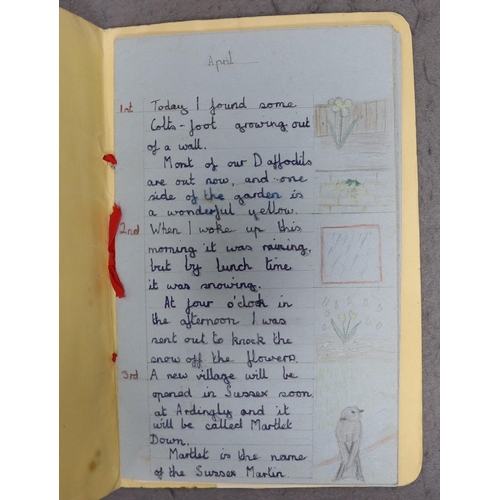 April
1st Today I found some
Colts-foot growing out
of a wall.
Most of our Daffodils
are out now, and one
side of the garden is
a wonderful yellow.
2nd When I woke up this
morning it was raining,
but by lunch time
it was snowing.
At four o'clock in
the afternoon I was
sent out to knock the
snow off the flowers.
3rd A new village will be
opened in Sussex soon
at Ardingly and it
will be called Martlet
Down.
Martlet is the name
of the Sussex Martin.